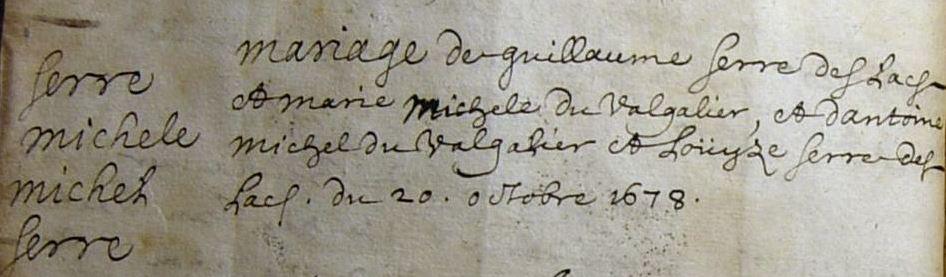 serre
michele
michel
serre
mariage de guillaume serre des Lacs
et marie michele du Valgalier, et dantoine
michel du Valgalier et Loüyze serre des
Lacs. du 20. octobre 1678.